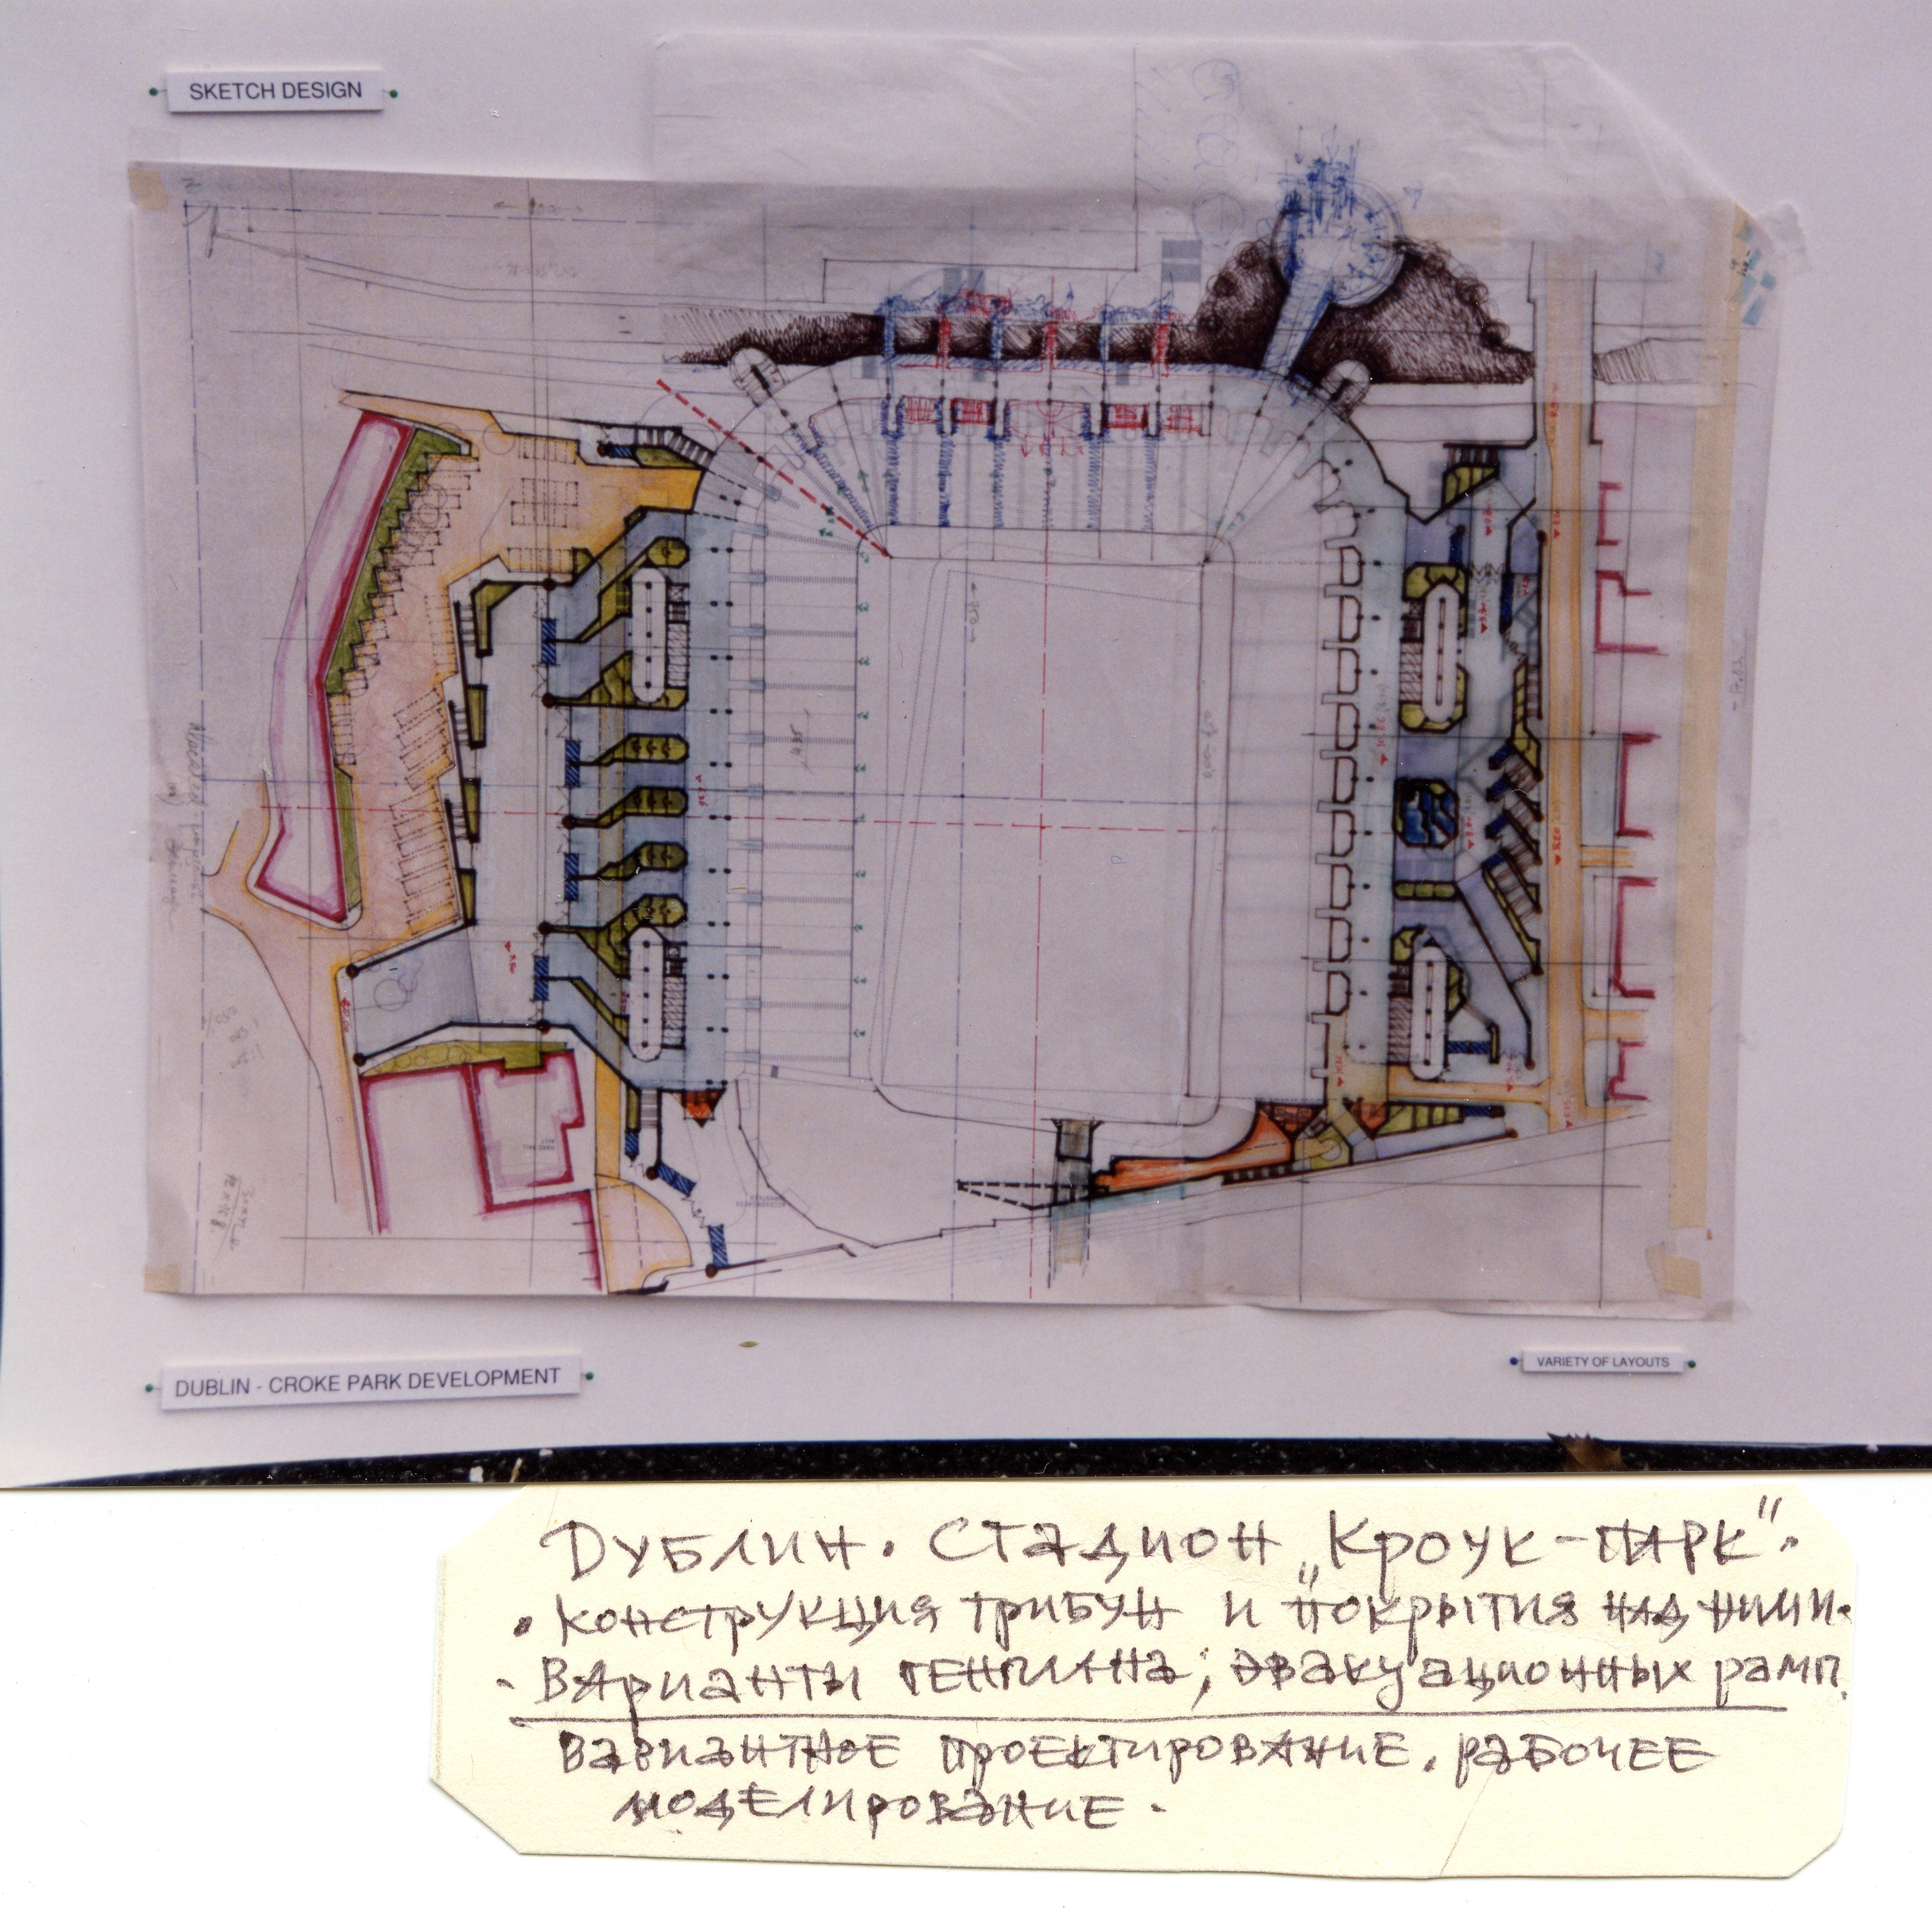 SKETCH DESIGN
DUBLIN - CROKE PARK DEVELOPMENT
VARIETY OF LAYOUTS
Дублин. Стадион „Кроук-парк".
• конструкция трибун и покрытия над ними.
- Варианты генплана; эвакуационных рамп.
вариантное проектирование. рабочее
моделирование.